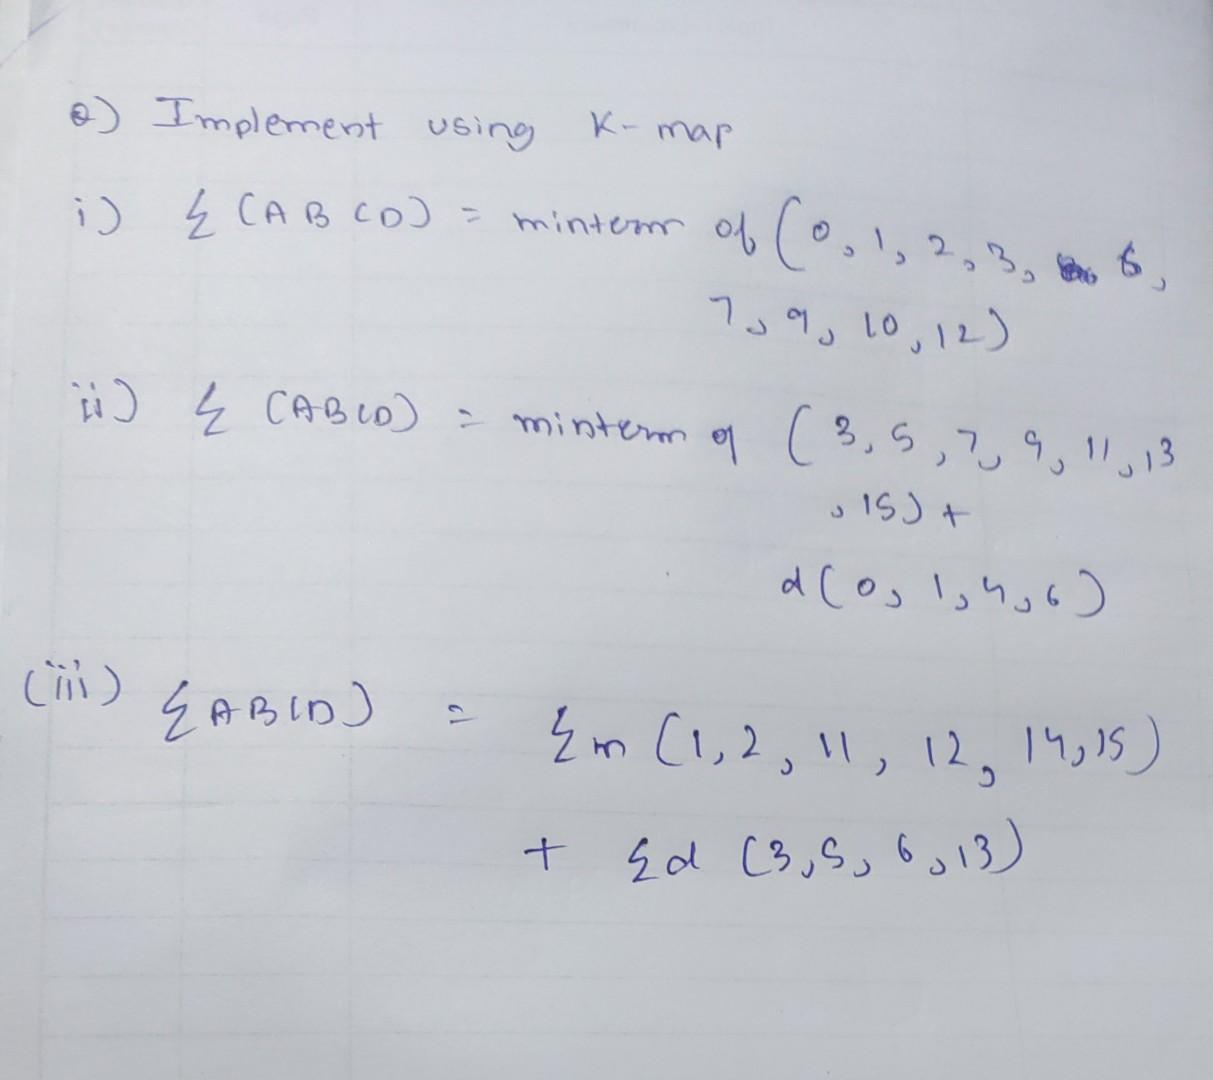 Q) Implement using K-map
i) Σ (ABCD) = minterm of (0, 1, 2, 3, 6,
7, 9, 10, 12)
ii) Σ (ABCD) = minterm of (3, 5, 7, 9, 11, 13
, 15) +
d(0, 1, 4, 6)
(iii) ΣABCD) = Σm (1, 2, 11, 12, 14, 15)
+ Σd (3, 5, 6, 13)